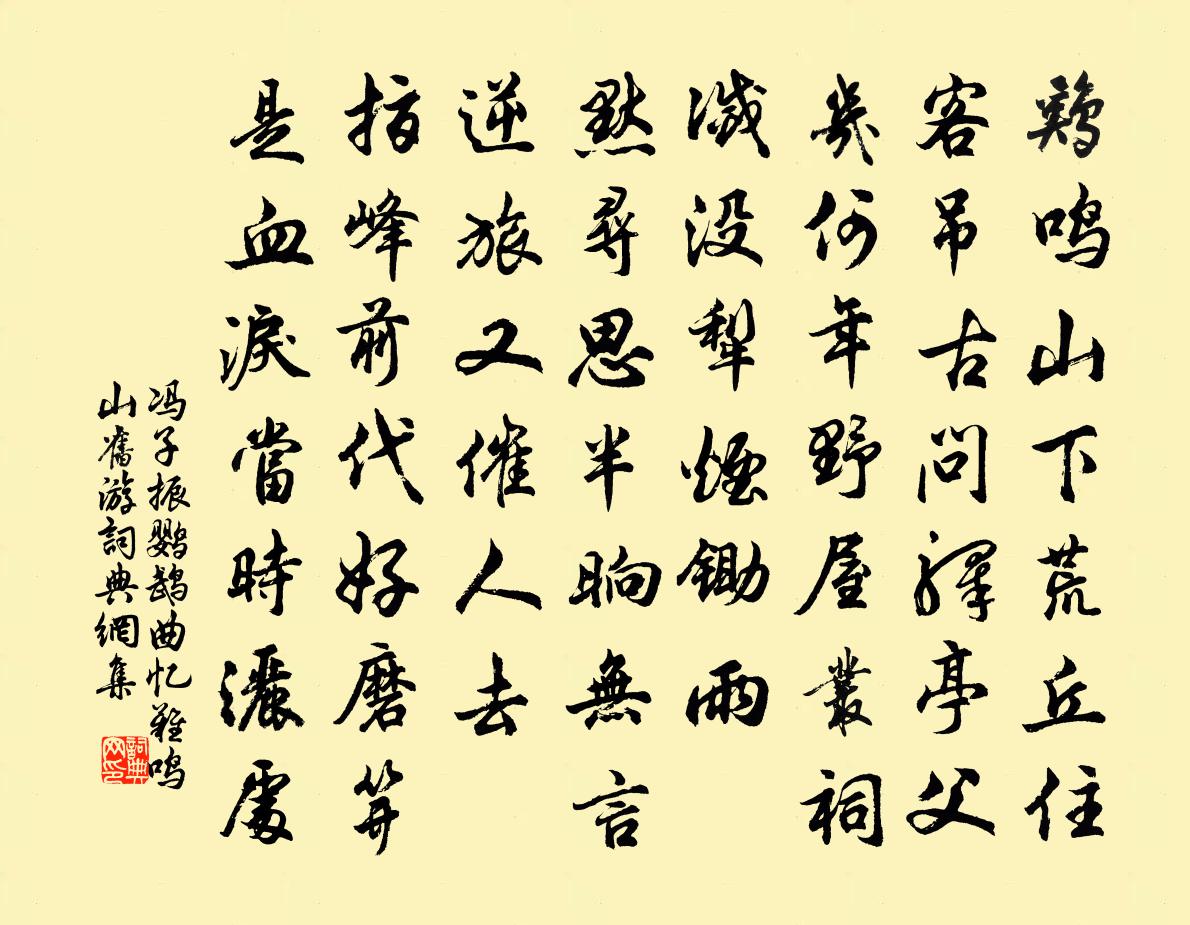 鷄鳴山下荒丘住
客吊古問驛亭父
幾何年野屋叢祠
滅没犁煙鋤雨
默尋思半晌無言
逆旅又催人去
指峰前代好磨笄
是血淚當時灑處
冯子振鹦鹉曲忆難鸣
山舊游詞典網集